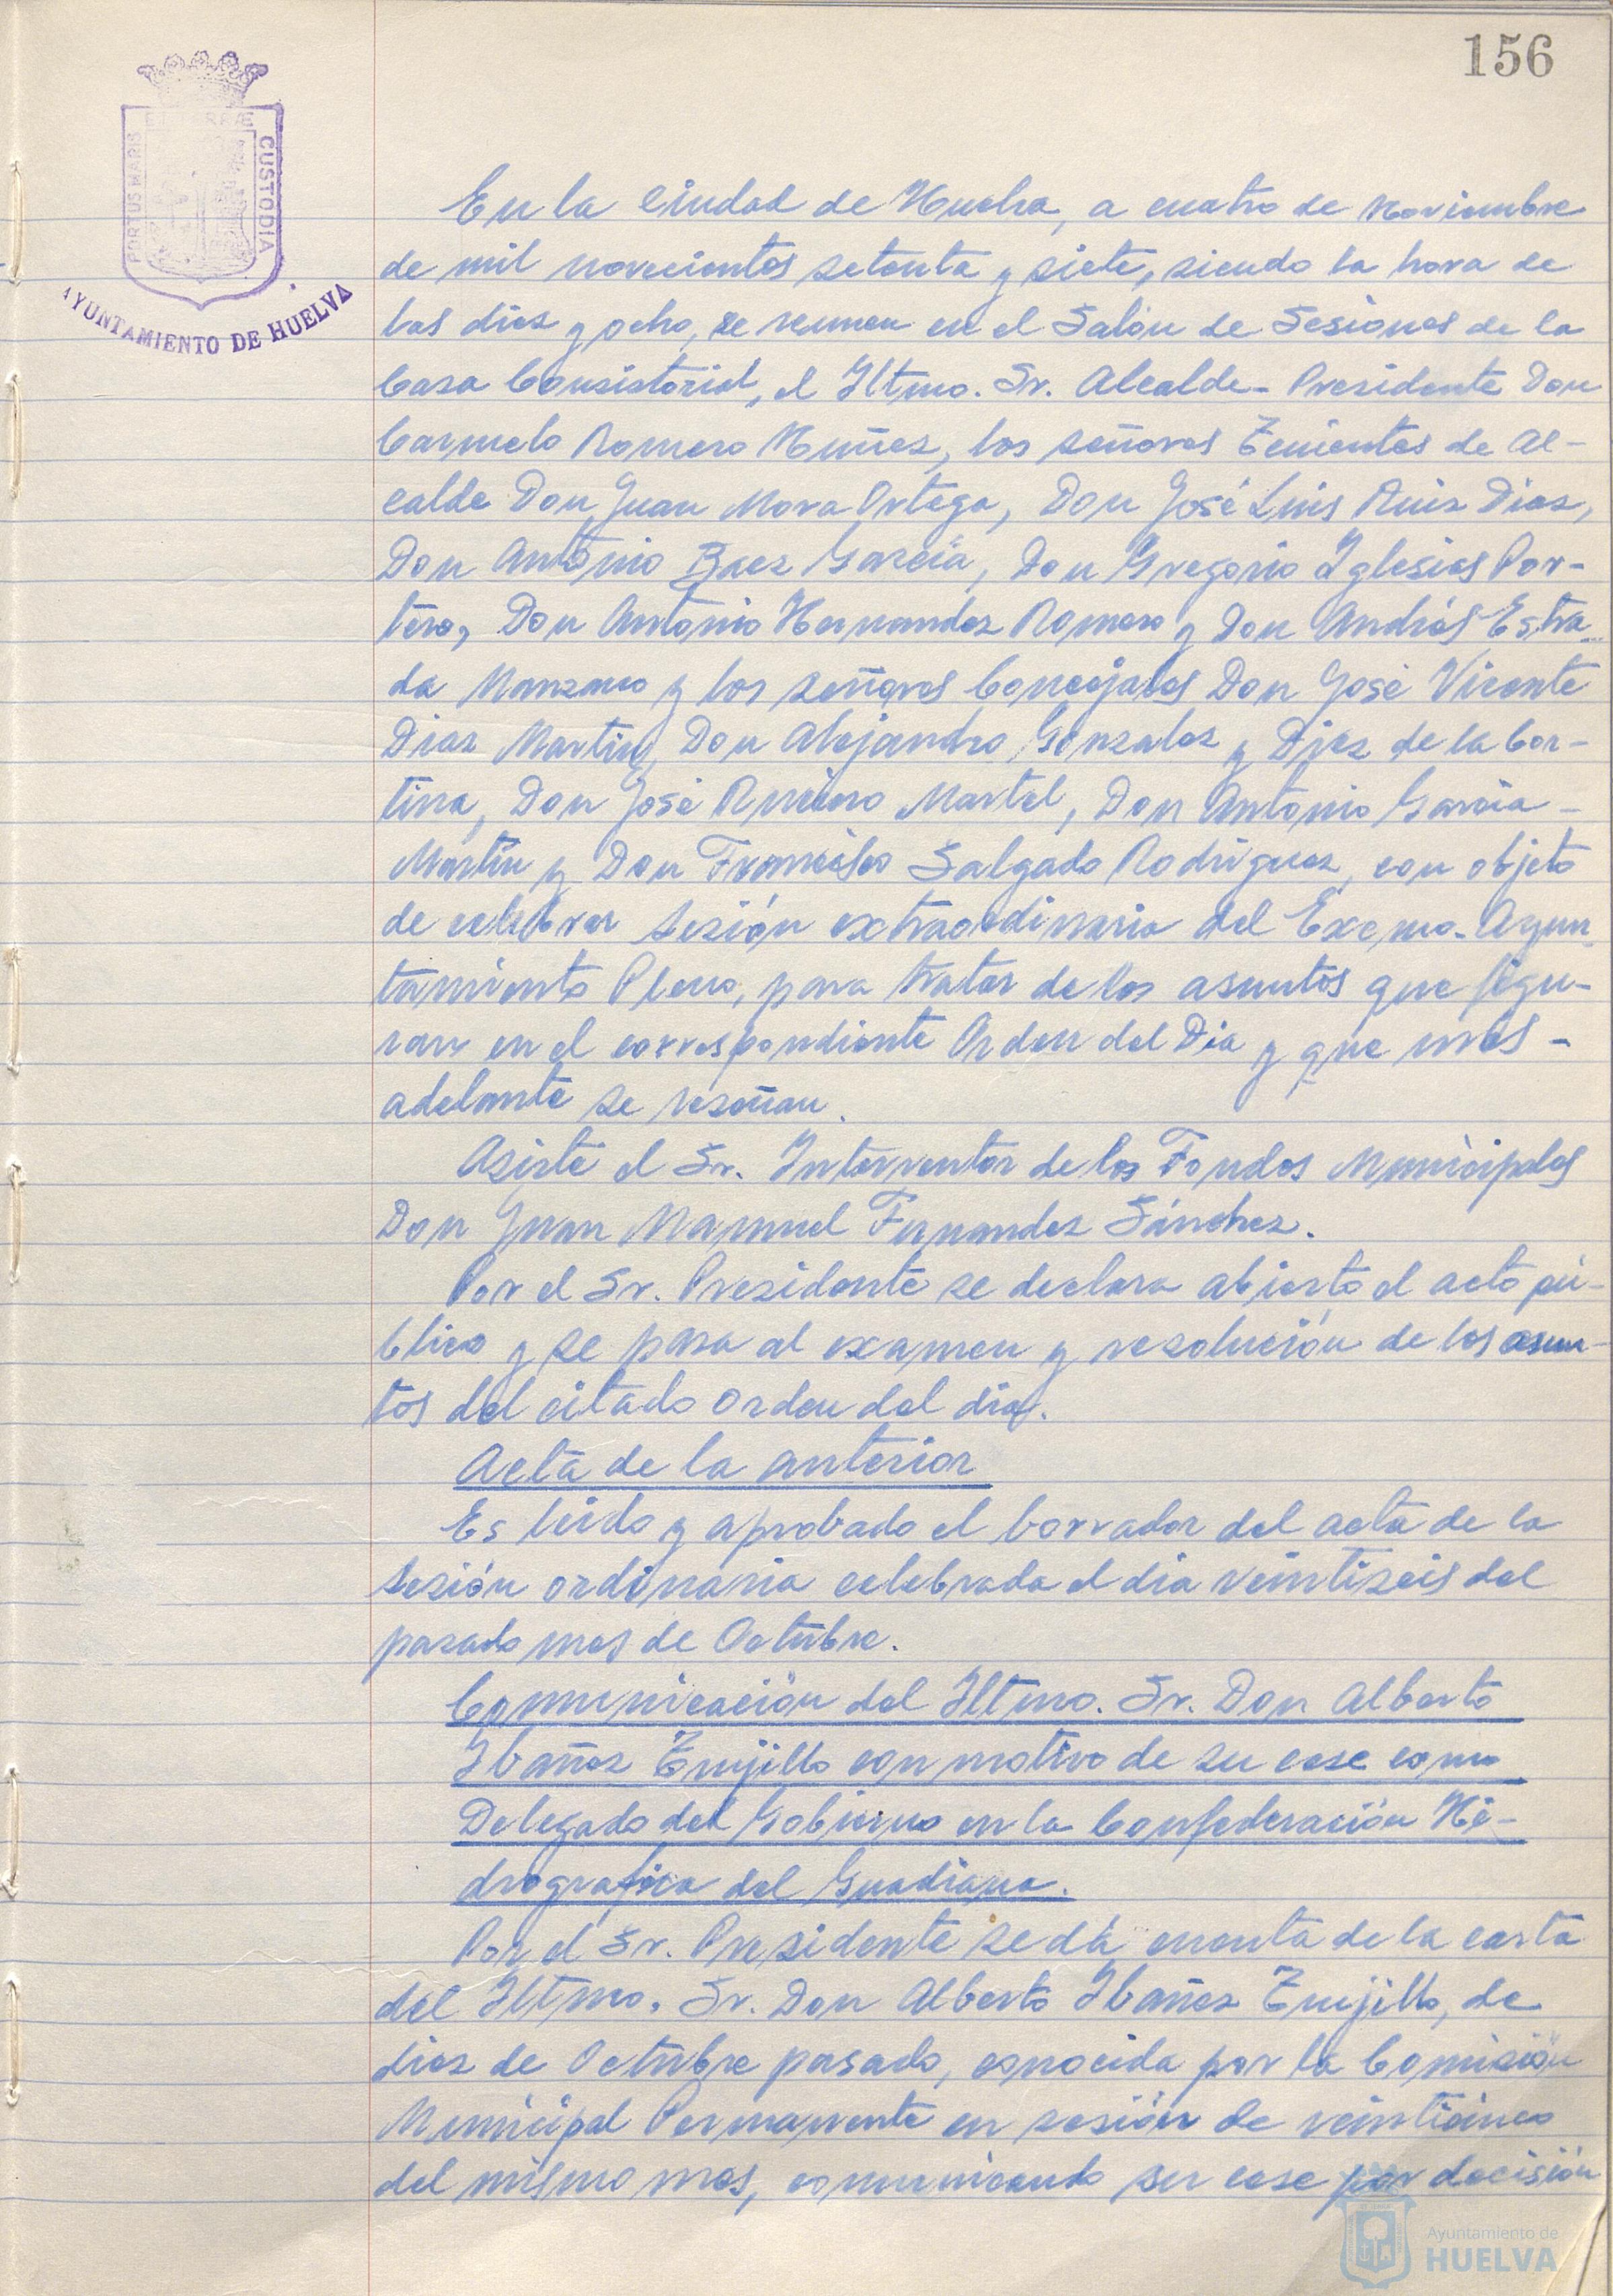 156
PORTUS MARIS ET TERRÆ CUSTODIA
AYUNTAMIENTO DE HUELVA
En la Ciudad de Huelva, a cuatro de Noviembre
de mil novecientos setenta y siete, siendo la hora de
las diez y ocho, se reunen en el Salón de Sesiones de la
Casa Consistorial, el Iltmo. Sr. Alcalde-Presidente Don
Carmelo Romero Nuñez, los señores Tenientes de Al-
calde Don Juan Mora Ortega, Don José Luis Ruiz Diaz,
Don Antonio Baez Garcia, Don Gregorio Iglesias Por-
tero, Don Antonio Hernandez Romero y Don Andrés Estra-
da Manzano y los señores Concejales Don José Vicente
Diaz Martin, Don Alejandro Gonzalez y Diez de la Cor-
tina, Don José Romero Martel, Don Antonio Garcia
Martín y Don Francisco Salgado Rodriguez, con objeto
de celebrar sesión extraordinaria del Excmo. Ayun-
tamiento Pleno, para tratar de los asuntos que figu-
ran en el correspondiente Orden del Dia y que mas -
adelante se reseñan.
Asiste el Sr. Interventor de los Fondos Municipales
Don Juan Manuel Fernandez Sánchez.
Por el Sr. Presidente se declara abierto el acto pú-
blico y se pasa al examen y resolución de los asun-
tos del citado Orden del dia.
Acta de la anterior
Es leido y aprobado el borrador del acta de la
sesión ordinaria celebrada el dia veintiseis del
pasado mes de Octubre.
Comunicación del Iltmo. Sr. Don Alberto
Ibañez Trujillo con motivo de su cese como
Delegado del Gobierno en la Confederación Hi-
drografica del Guadiana.
Por el Sr. Presidente se dá cuenta de la carta
del Iltmo. Sr. Don Alberto Ibañez Trujillo, de
diez de Octubre pasado, conocida por la Comisión
Municipal Permanente en sesión de veinticinco
del mismo mes, comunicando su cese por decisión
Ayuntamiento de
HUELVA